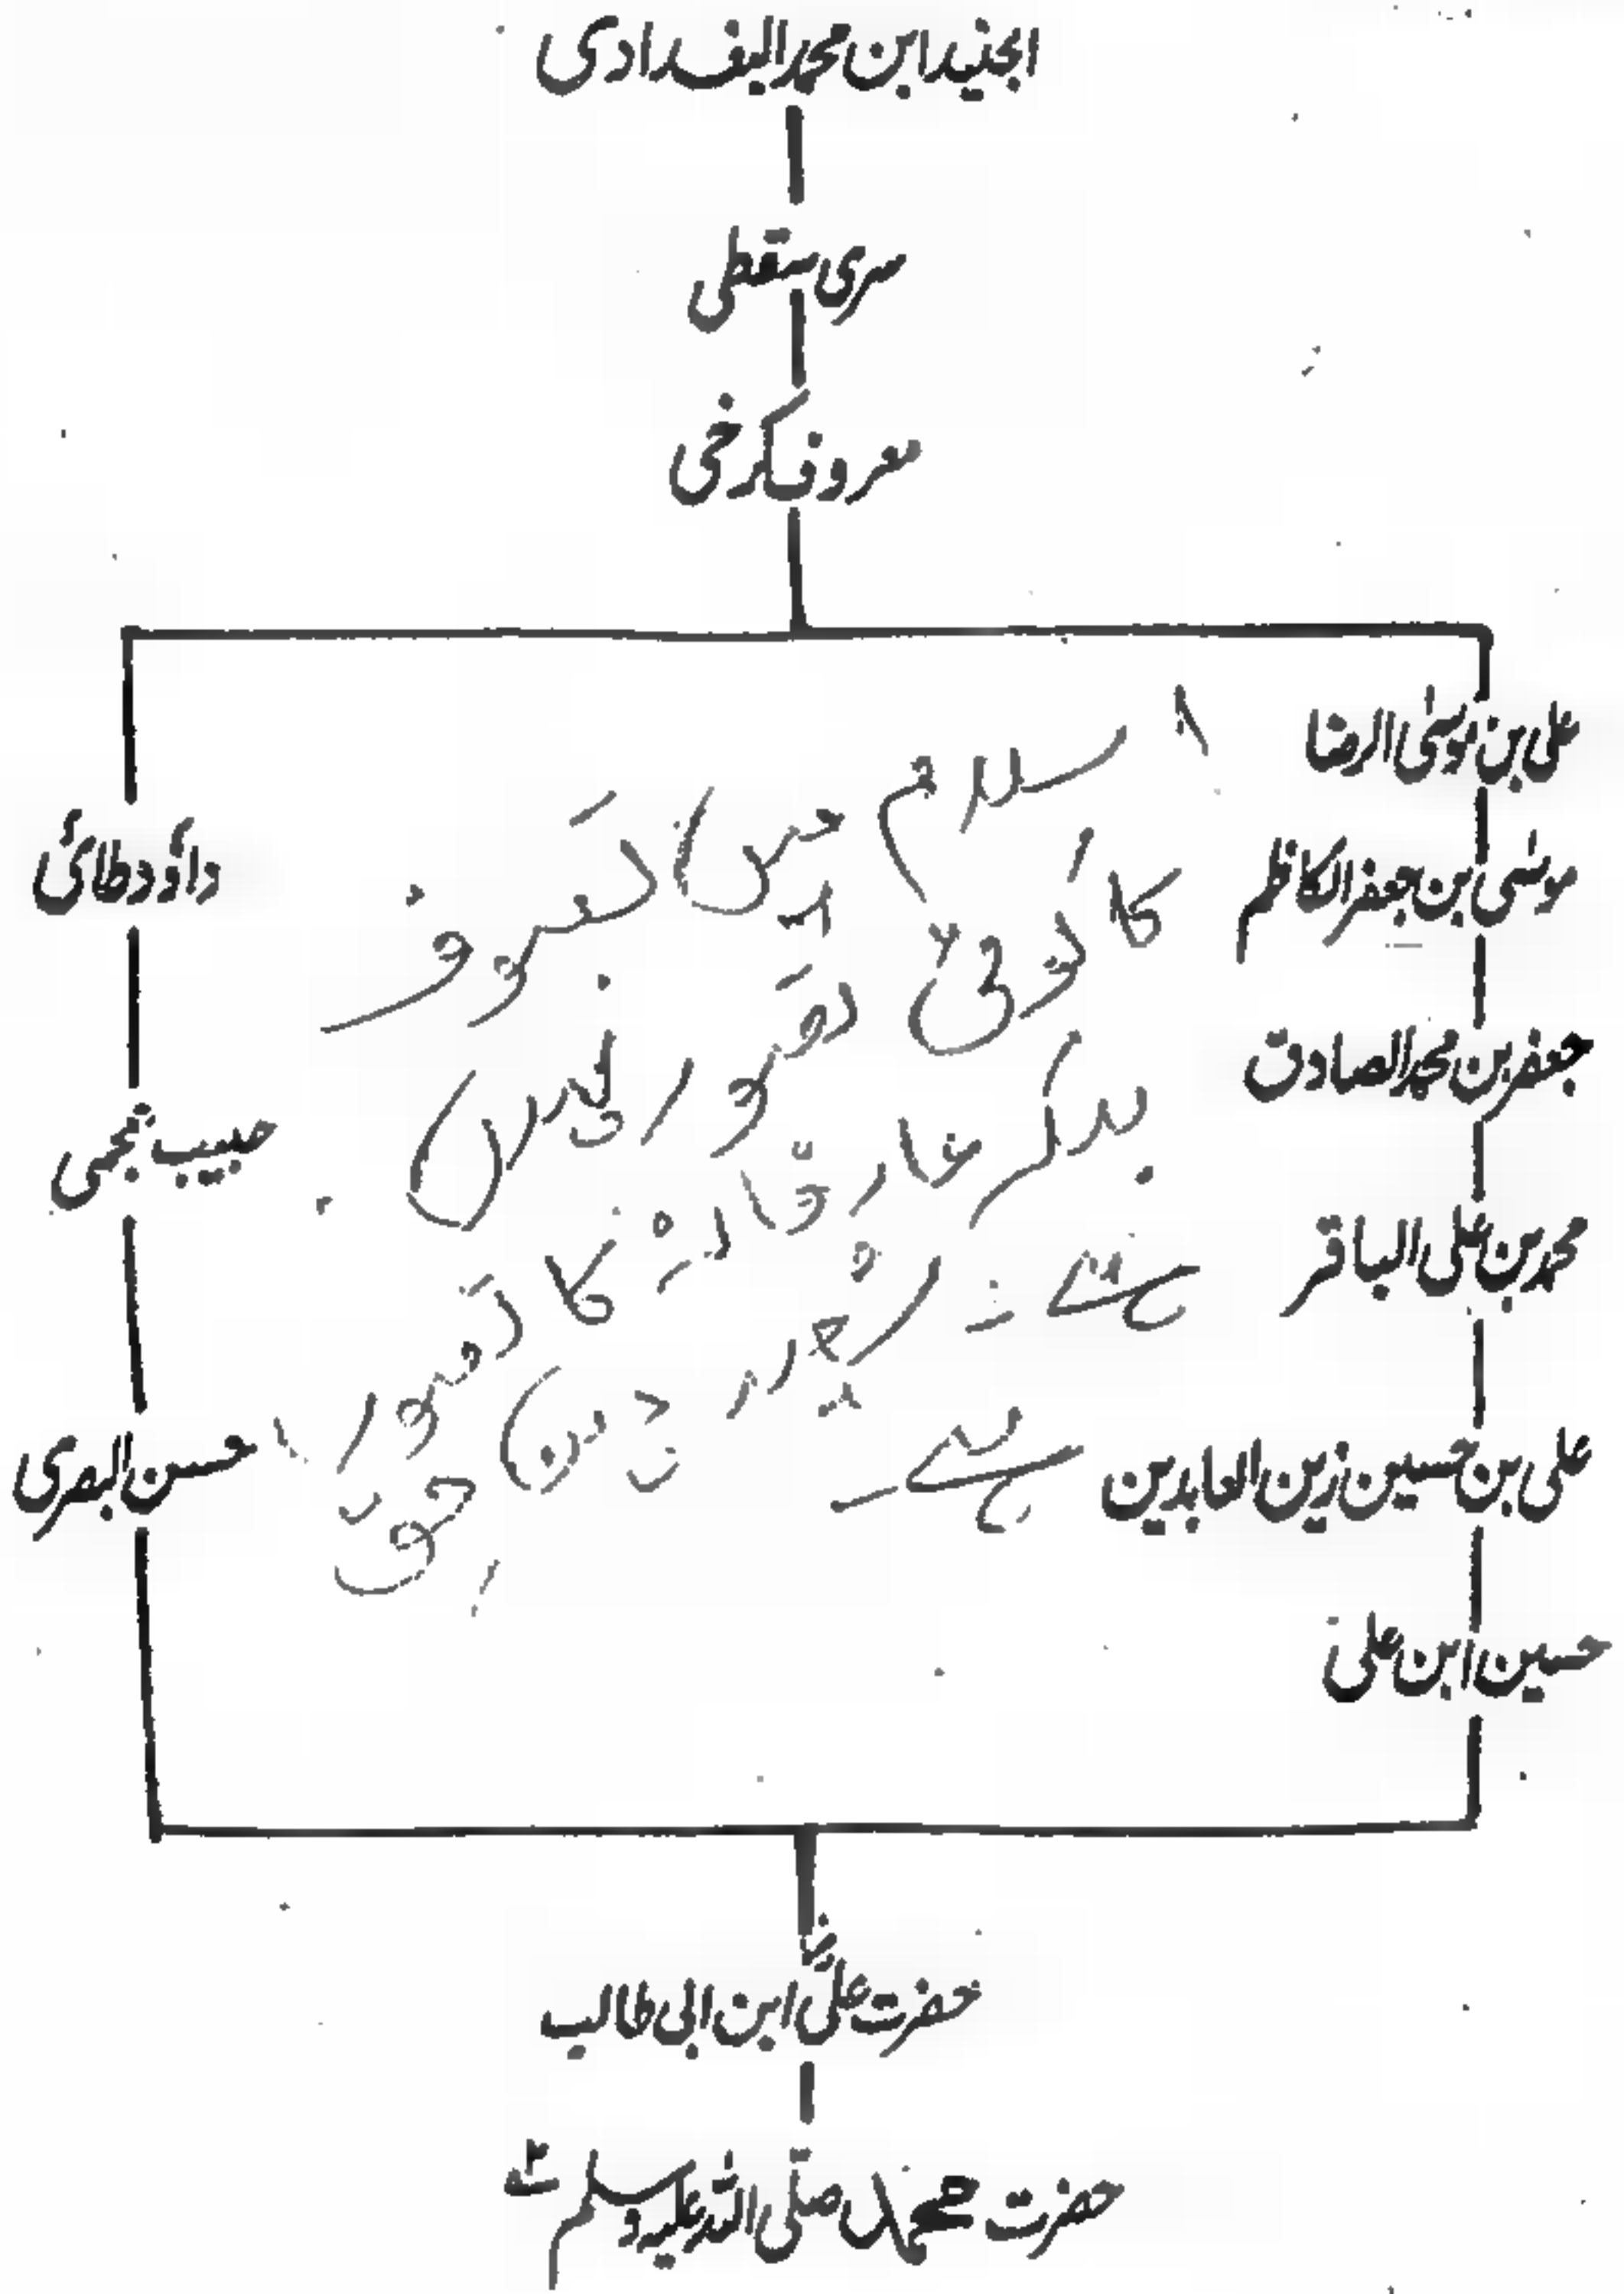 الجنید ابن محمد البغدادی
سری سقطی
معروف کرخی
علی بن موسیٰ الرضا
موسیٰ بن جعفر الکاظم
جعفر بن محمد الصادق
محمد بن علی الباقر
علی بن حسین زین العابدین
حسین ابن علی
داؤد طائی
حبیب عجمی
حسن البصری
اسلام میں تصوف
کا کوئی تصور نہیں
بلکہ خانقاہ کا تصور
ہے۔
ہے۔
حضرت علیؓ ابن ابی طالب
حضرت محمد صلی اللہ علیہ وسلم